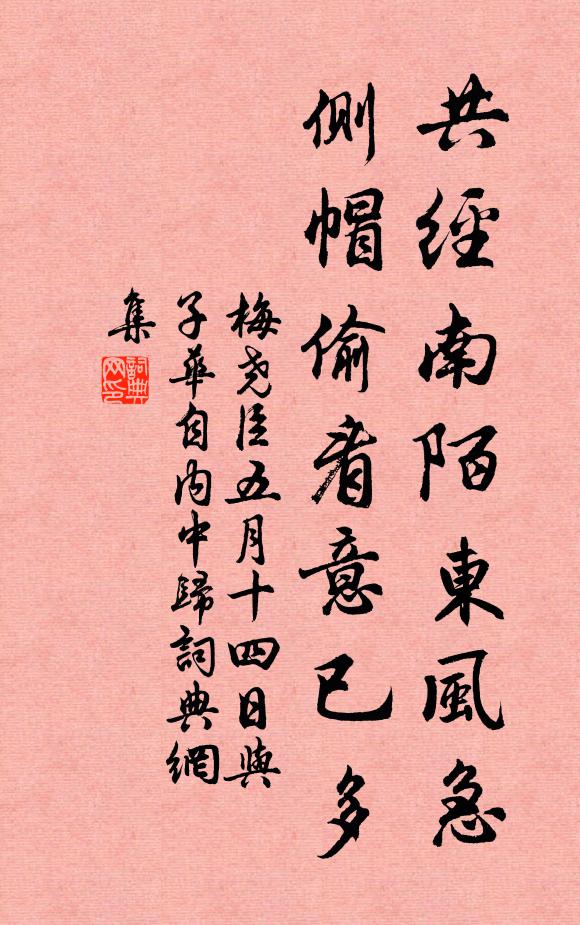 共經南陌東風急
側帽偷看意已多
梅堯臣五月十四日與
子華自內中歸詞典網
集
詞典
网印